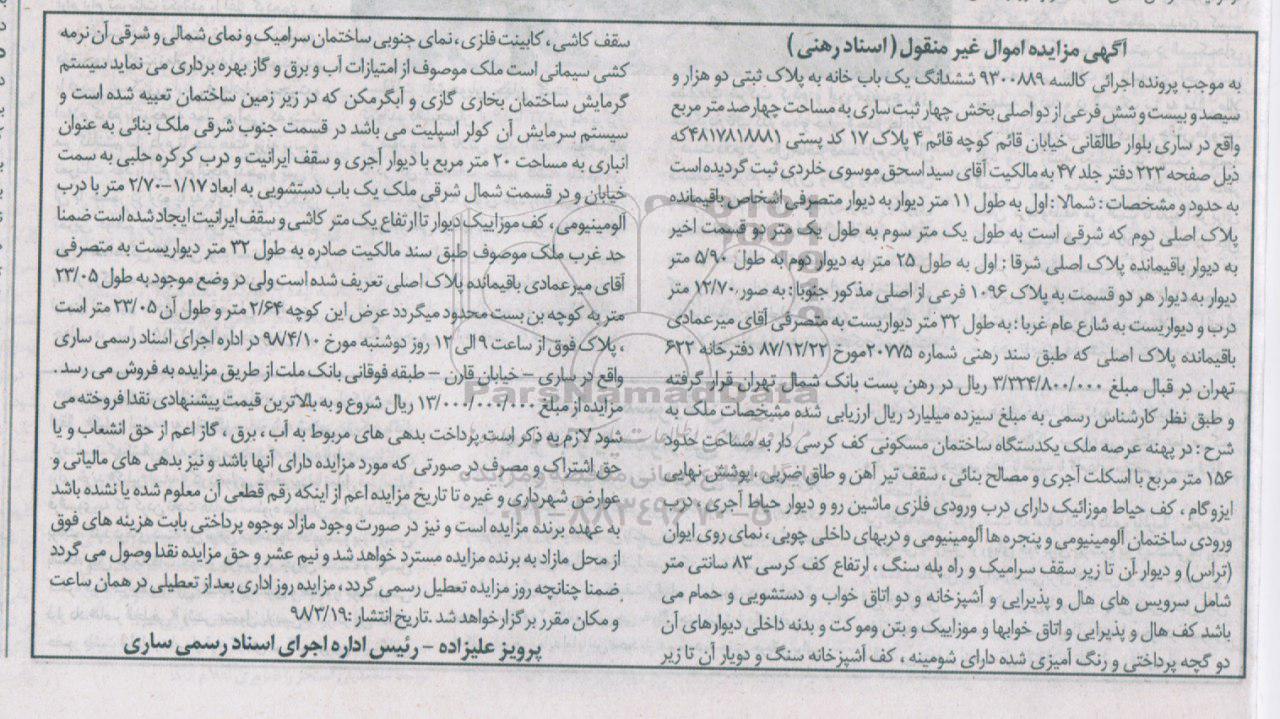 آگهی مزایده اموال غیر منقول ( اسناد رهنی )
به موجب پرونده اجرائی کالسه ۹۳۰۰۸۸۹ ششدانگ یک باب خانه به پلاک ثبتی دو هزار و
سیصد و بیست و شش فرعی از دو اصلی بخش چهار ثبت ساری به مساحت چهارصد متر مربع
واقع در ساری بلوار طالقانی خیابان قائم کوچه قائم ۴ پلاک ۱۷ کد پستی ۴۸۱۷۸۱۸۸۸۱که
ذیل صفحه ۲۲۳ دفتر جلد ۴۷ به مالکیت آقای سید اسحق موسوی خلردی ثبت گردیده است
به حدود و مشخصات : شمالا : اول به طول ۱۱ متر دیوار به دیوار متصرفی اشخاص باقیمانده
پلاک اصلی دوم که شرقی است به طول یک متر سوم به طول یک متر دو قسمت اخیر
به دیوار باقیمانده پلاک اصلی شرقا : اول به طول ۲۵ متر به دیوار دوم به طول ۵/۹۰ متر
دیوار به دیوار هر دو قسمت به پلاک ۱۰۹۶ فرعی از اصلی مذکور جنوبا : به صور ۱۲/۷۰ متر
درب و دیواریست به شارع عام غربا : به طول ۳۲ متر دیواریست به متصرفی آقای میرعمادی
باقیمانده پلاک اصلی که طبق سند رهنی شماره ۲۰۷۷۵مورخ ۸۷/۱۲/۲۲ دفترخانه ۶۲۲
تهران در قبال مبلغ ۳/۳۲۴/۸۰۰/۰۰۰ ریال در رهن پست بانک شمال تهران قرار گرفته
و طبق نظر کارشناس رسمی به مبلغ سیزده میلیارد ریال ارزیابی شده مشخصات ملک به
شرح : در پهنه عرصه ملک یکدستگاه ساختمان مسکونی کف کرسی دار به مساحت حدود
۱۵۶ متر مربع با اسکلت آجری و مصالح بنائی ، سقف تیر آهن و طاق ضربی ، پوشش نهایی
ایزوگام ، کف حیاط موزائیک دارای درب ورودی فلزی ماشین رو و دیوار حیاط آجری ، درب
ورودی ساختمان آلومینیومی و پنجره ها آلومینیومی و دربهای داخلی چوبی ، نمای روی ایوان
(تراس) و دیوار آن تا زیر سقف سرامیک و راه پله سنگ ، ارتفاع کف کرسی ۸۳ سانتی متر
شامل سرویس های هال و پذیرایی و آشپزخانه و دو اتاق خواب و دستشویی و حمام می
باشد کف هال و پذیرایی و اتاق خوابها و موزاییک و بتن وموکت و بدنه داخلی دیوارهای آن
دو گچه پرداختی و رنگ آمیزی شده دارای شومینه ، کف آشپزخانه سنگ و دویار آن تا زیر
سقف کاشی ، کابینت فلزی ، نمای جنوبی ساختمان سرامیک و نمای شمالی و شرقی آن نرمه
کشی سیمانی است ملک موصوف از امتیازات آب و برق و گاز بهره برداری می نماید سیستم
گرمایش ساختمان بخاری گازی و آبگرمکن که در زیر زمین ساختمان تعبیه شده است و
سیستم سرمایش آن کولر اسپلیت می باشد در قسمت جنوب شرقی ملک بنائی به عنوان
انباری به مساحت ۲۰ متر مربع با دیوار آجری و سقف ایرانیت و درب کرکره حلبی به سمت
خیابان و در قسمت شمال شرقی ملک یک باب دستشویی به ابعاد ۱/۱۷–۲/۷۰ متر با درب
آلومینیومی ، کف موزاییک دیوار تا ارتفاع یک متر کاشی و سقف ایرانیت ایجاد شده است ضمنا
حد غرب ملک موصوف طبق سند مالکیت صادره به طول ۳۲ متر دیواریست به متصرفی
آقای میرعمادی باقیمانده پلاک اصلی تعریف شده است ولی در وضع موجود به طول ۲۳/۰۵
متر به کوچه بن بست محدود میگردد عرض این کوچه ۲/۶۴ متر و طول آن ۲۳/۰۵ متر است
، پلاک فوق از ساعت ۹ الی ۱۲ روز دوشنبه مورخ ۹۸/۴/۱۰ در اداره اجرای اسناد رسمی ساری
واقع در ساری – خیابان قارن – طبقه فوقانی بانک ملت از طریق مزایده به فروش می رسد .
مزایده از مبلغ ۱۳/۰۰۰/۰۰۰/۰۰۰ ریال شروع و به بالاترین قیمت پیشنهادی نقدا فروخته می
شود لازم به ذکر است پرداخت بدهی های مربوط به آب ، برق ، گاز اعم از حق انشعاب و یا
حق اشتراک و مصرف در صورتی که مورد مزایده دارای آنها باشد و نیز بدهی های مالیاتی و
عوارض شهرداری و غیره تا تاریخ مزایده اعم از اینکه رقم قطعی آن معلوم شده یا نشده باشد
به عهده برنده مزایده است و نیز در صورت وجود مازاد ،وجوه پرداختی بابت هزینه های فوق
از محل مازاد به برنده مزایده مسترد خواهد شد و نیم عشر و حق مزایده نقدا وصول می گردد
ضمنا چنانچه روز مزایده تعطیل رسمی گردد ، مزایده روز اداری بعد از تعطیلی در همان ساعت
و مکان مقرر برگزار خواهد شد .تاریخ انتشار :۹۸/۳/۱۹
پرویز علیزاده – رئیس اداره اجرای اسناد رسمی ساری
ParsNamadData